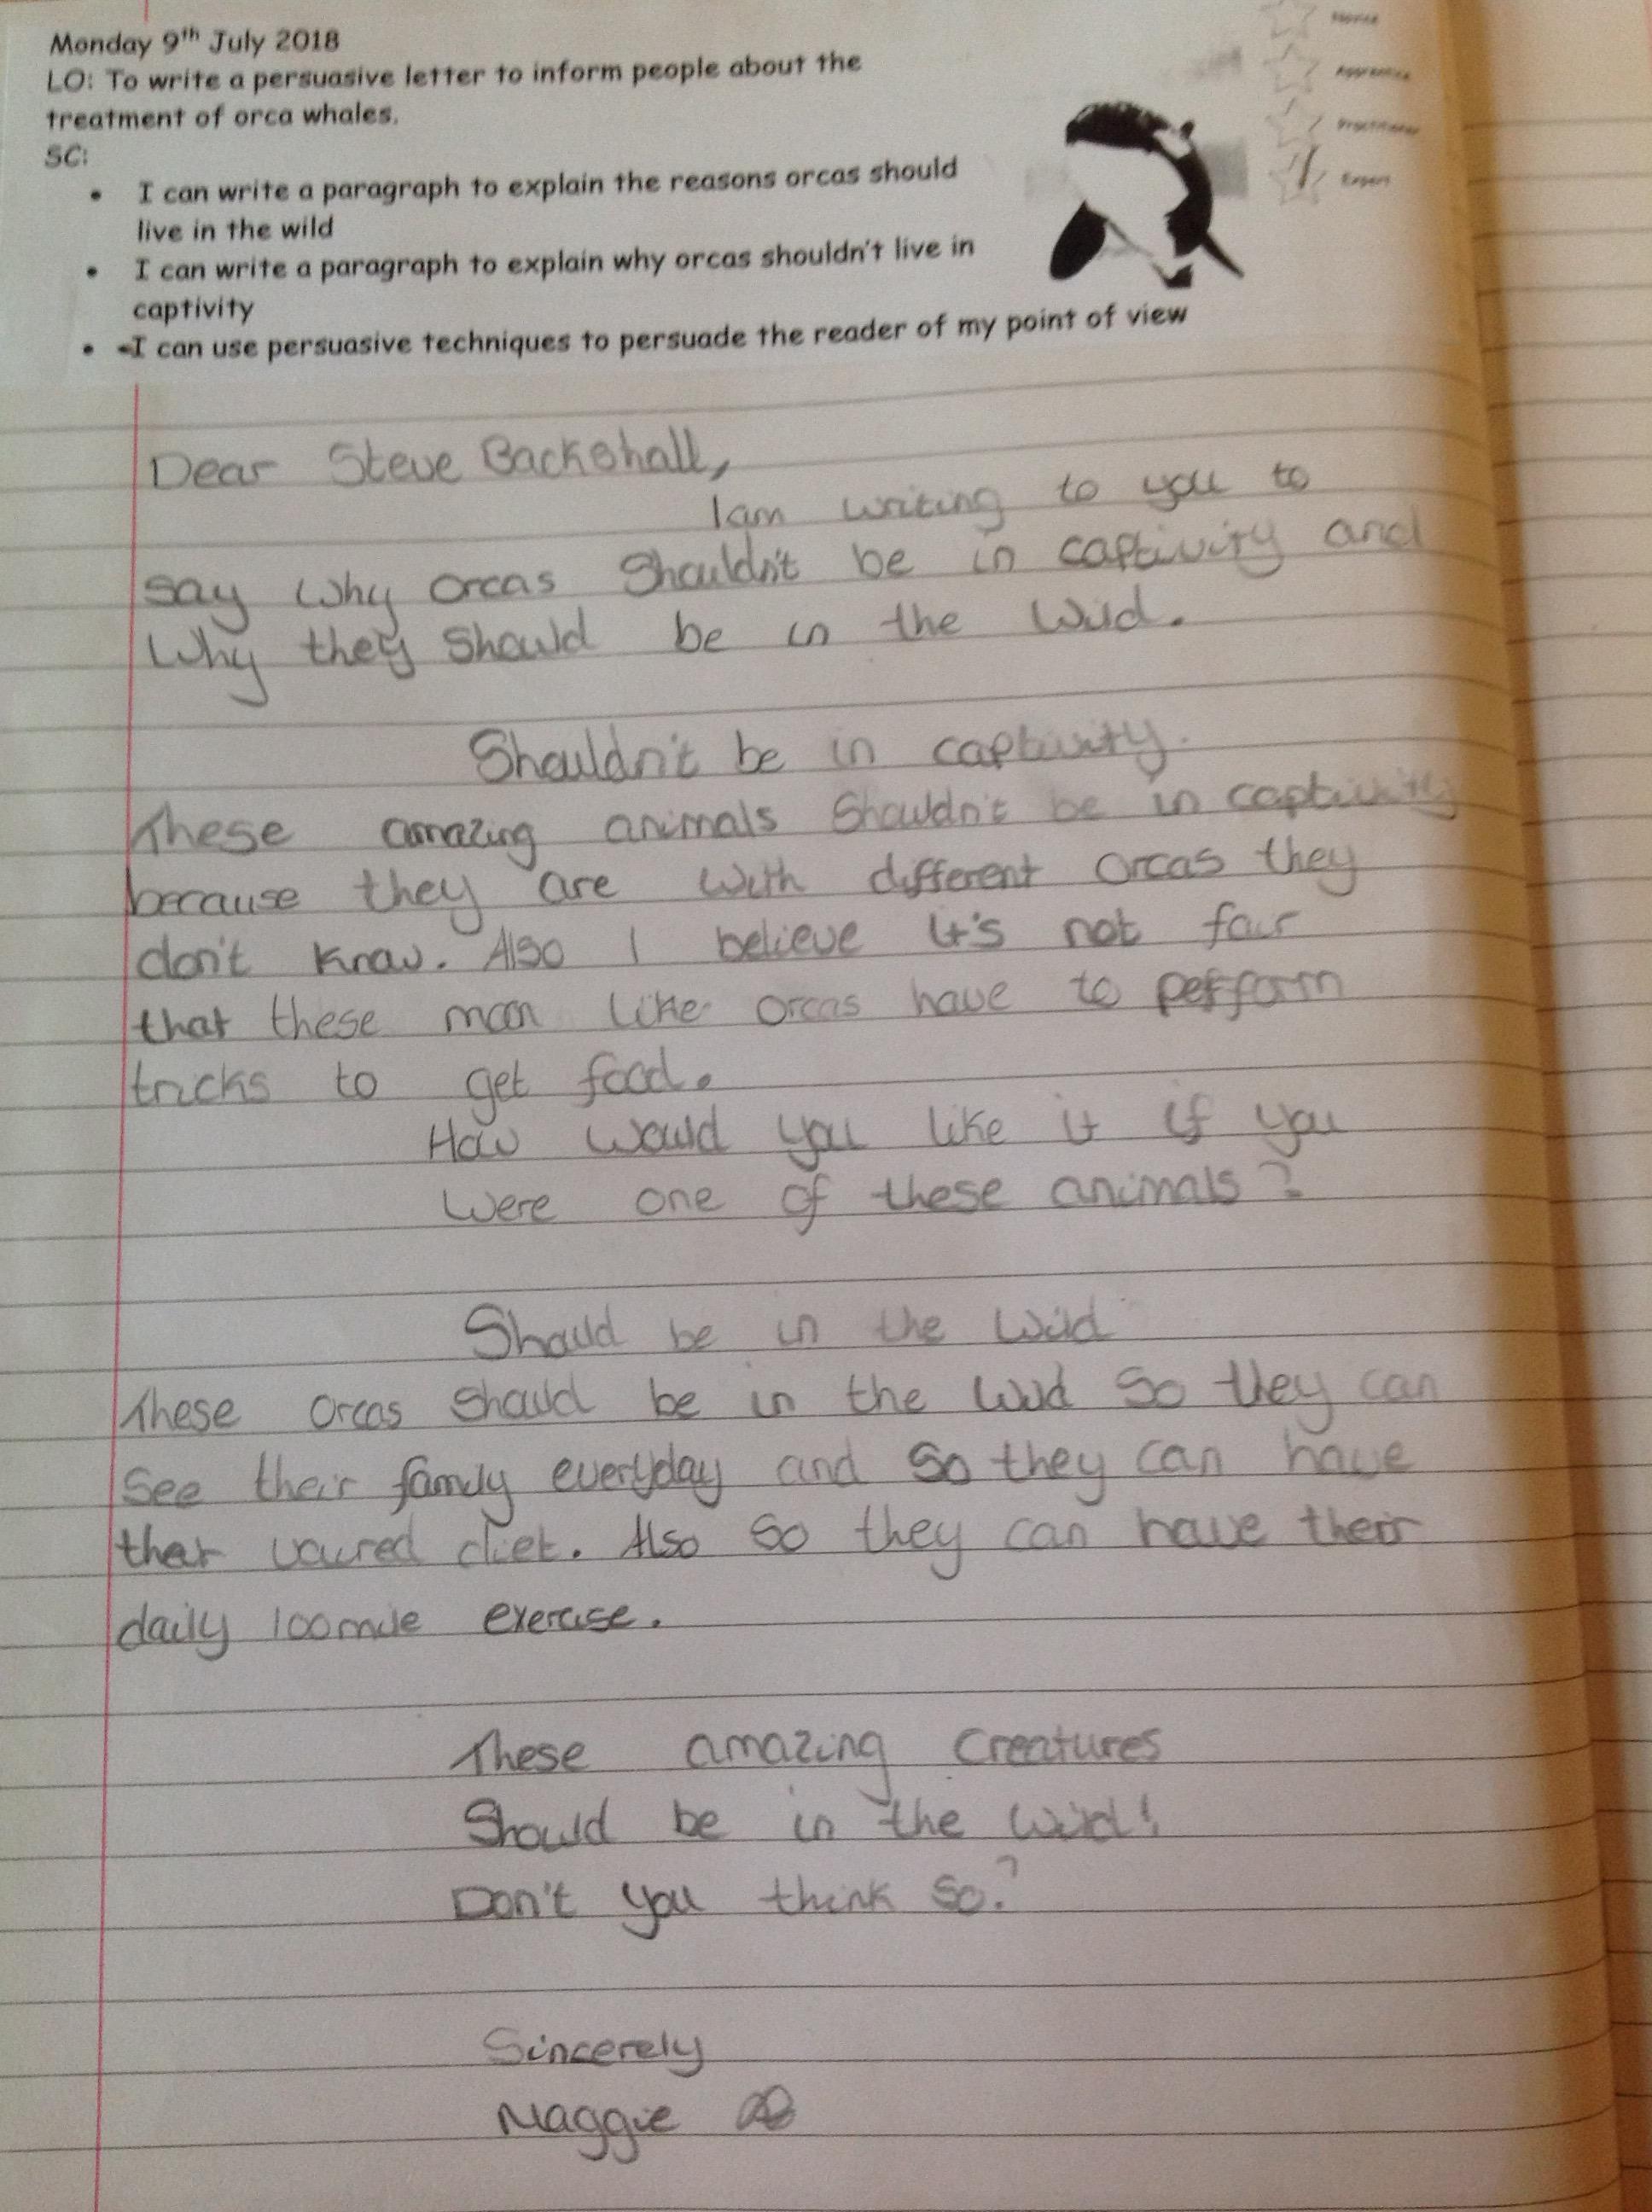 Monday 9th July 2018
LO: To write a persuasive letter to inform people about the
treatment of orca whales.
SC:
• I can write a paragraph to explain the reasons orcas should
live in the wild
• I can write a paragraph to explain why orcas shouldn't live in
captivity
• I can use persuasive techniques to persuade the reader of my point of view
Novice
Apprentice
Practitioner
Expert
Dear Steve Backshall,
I am writing to you to
say why orcas shouldn't be in captivity and
why they should be in the wild.
Shouldn't be in captivity.
These amazing animals shouldn't be in captivity
because they are with different orcas they
don't know. Also I believe it's not fair
that these moon like orcas have to perform
tricks to get food.
How would you like it if you
were one of these animals?
Should be in the wild
These orcas should be in the wild so they can
see their family everyday and so they can have
their varied diet. Also so they can have their
daily 100mile exercise.
These amazing creatures
should be in the wild!
Don't you think so?
Sincerely
Maggie